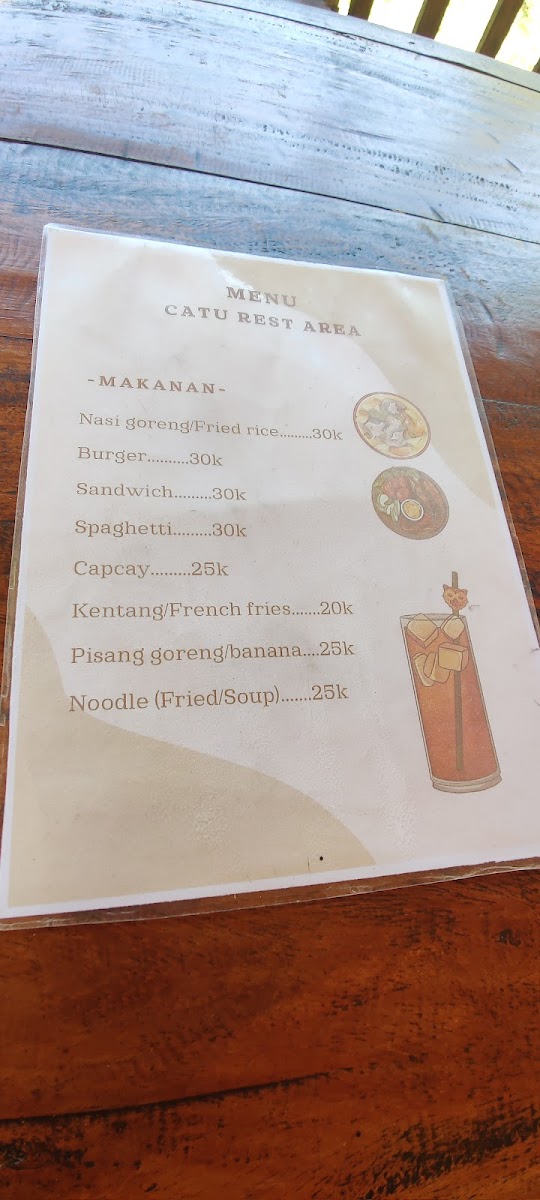 MENU
CATU REST AREA
-MAKANAN-
Nasi goreng/Fried rice.........30k
Burger..........30k
Sandwich.........30k
Spaghetti.........30k
Capcay.........25k
Kentang/French fries.......20k
Pisang goreng/banana....25k
Noodle (Fried/Soup).......25k